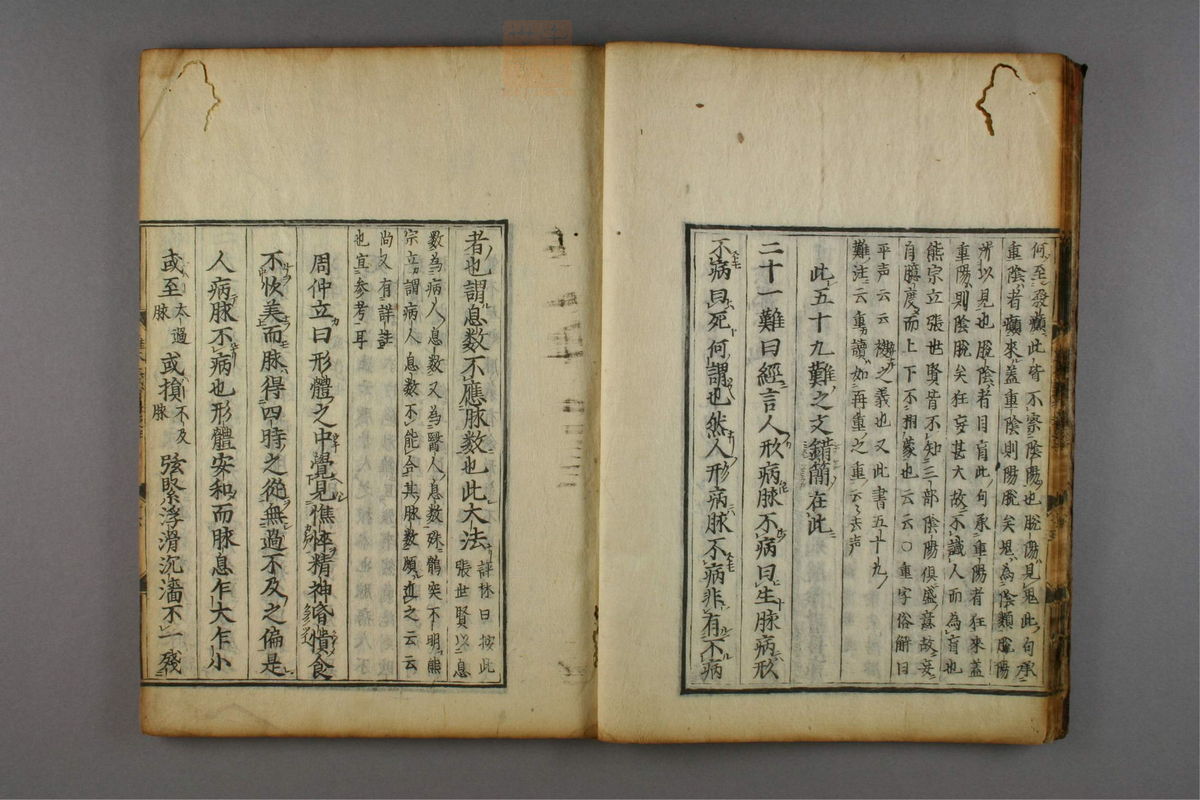 何至發癲此皆不察陰陽也脫陽見鬼此句承
重陰者癲來蓋重陰則陽脫矣鬼為陰類脫陽
所以見也脫陰者目盲此句承重陽者狂來蓋
重陽則陰脫矣狂妄甚大故不識人而為盲也
熊宗立張世賢皆不知三部陰陽俱盛蓋故妄
自臆度而上下不相蒙也云云○重字俗解曰
平声云云複之義也又此書五十九
難注云重讀如再重之重云々去声
此五十九難之文錯簡在此
二十一難曰經言人形病脉不病曰生脉病形
不病曰死何謂也然人形病脉不病非有不病
者也謂息数不應脉数也此大法
評林曰按此
張世賢以息
数為病人息数又為醫人息数殊鶻突不明熊
宗立謂病人息数不能合其脉数頗近之云云
尚又有詳註
也宜参考耳
周仲立曰形體之中覺見憔悴精神昏憒食
不忺美而脉得四時之從無過不及之偏是
人病脉不病也形體安和而脉息乍大乍小
或至太過脉或損不及脉弦緊浮滑沉濇不一殘